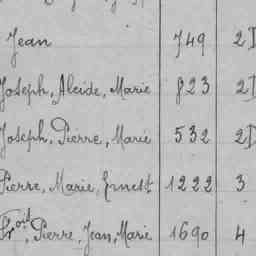 Jean 749 2D
Joseph, Alcide, Marie 823 2D
Joseph, Pierre, Marie 532 2D
Pierre, Marie, Ernest 1222 3
Froit, Pierre, Jean, Marie 1690 4